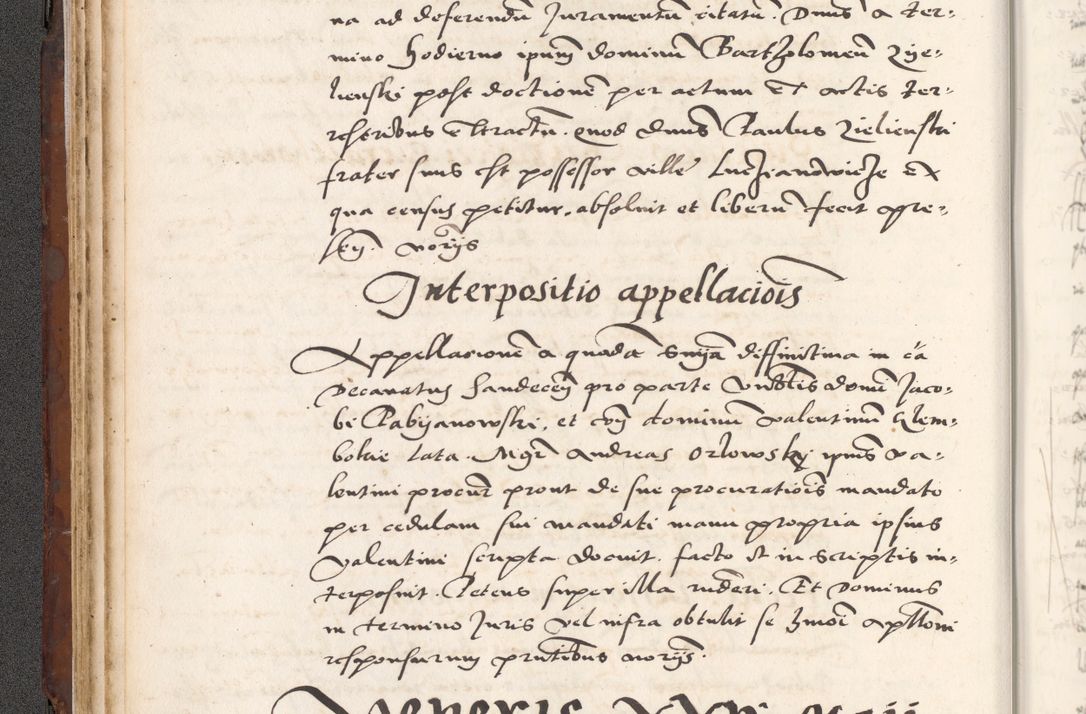 na ad deferendũ Juramentũ citatũ. Dnus a ter-
mino hodierno ipum dominũ Bartholomeũ Zye-
lienski post doctionẽ per actum ex actis ter-
restribus extractũ. quod dnus Paulus Zielienski
frater suus est possessor ville Lucziandwicze ex
qua census petitur, absoluit et liberũ fecit pre-
sen. norijs
Interpositio appellaciois
Appellacionẽ a quada snija diffinitiua in ca
Decanatus Sandecen pro parte vnblis domi Jaco-
bi Rabijanowski, et con dominũ valentinũ Klem-
bokie lata. Mgr Andreas Orlowsky ipius va-
lentini procur prout de sue procuratiois mandato
per cedulam sui mandati manu propria ipsius
valentini scripta docuit. facto et in scriptis in-
terposuit. Petens super illa rnderi. Et Dominus
in termino Juris vel infra obtulit se hmoi appltioni
responsurum pntibus norijs.